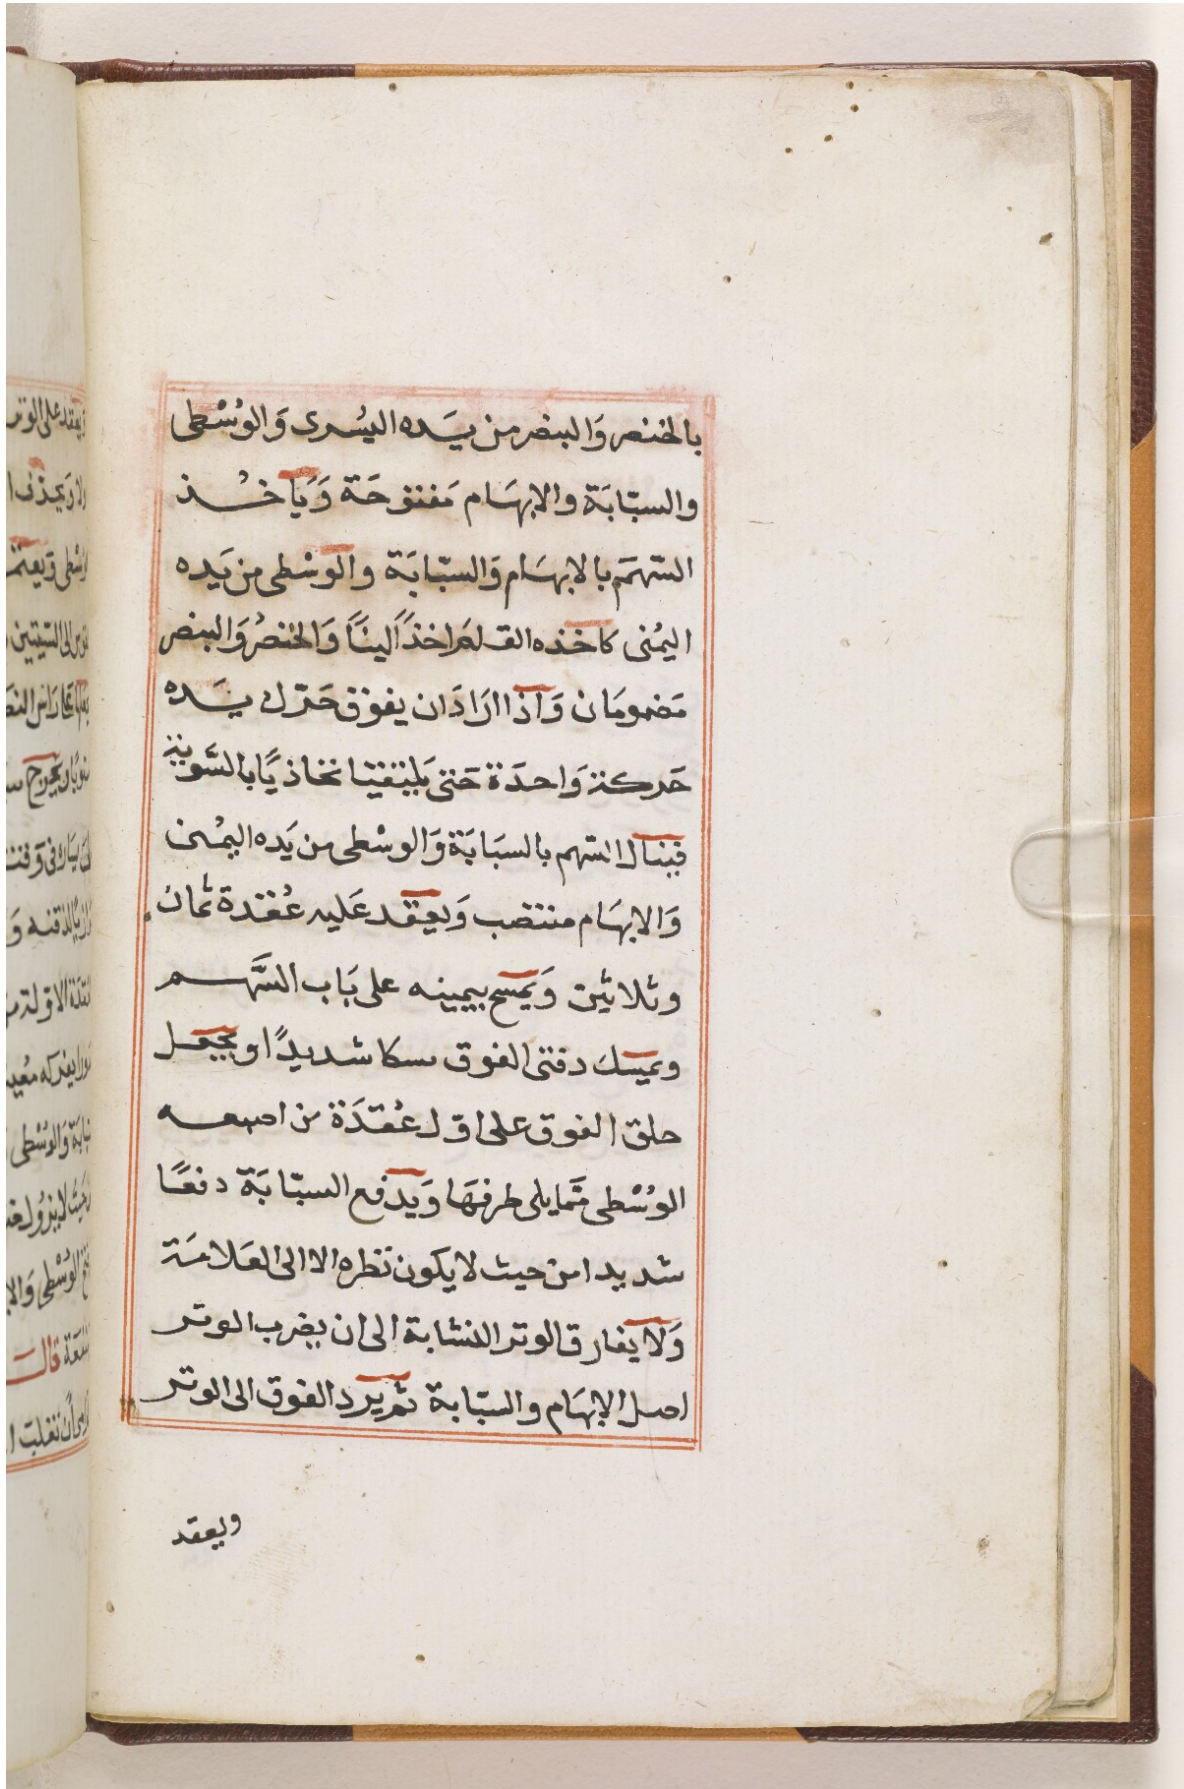 بالخنصر وَالبنصر من يَده اليُسرى وَالوُسْطى
والسبّابَة والابهَام مَفتوحَة وَيَاخُذ
السّهمَ بالابهَام وَالسبّابَة والوسْطى من يَده
اليمُنى كاخذه القلمَ اخذاً لينًا وَالخنصُر وَالبنصر
مَضمومَان وَاذا ارَادَ ان يفوّق حَرّك يَده
حَركة وَاحدَة حَتى يَلتقيا نحاذيًا بالسّوية
فينال السّهم بالسبَابَة وَالوسْطى من يَده اليمُنى
وَالابهَام منتصب وَيعقد عَليه عُقدة ثمان
وثلاثين وَيمسَح بيمينه على بَاب السَّهم
ويمسك دفتى الفوق مسكا شديدًا ويجعَل
حلق الفوق على اوّل عُقدَة من اصبعه
الوُسْطى ممَّا يلى طرفهَا وَيَدفع السبّابَة دفعًا
شديدا من حيث لا يكون نظره الا الى العَلامَة
وَلا يفارق الوتر النشابة الى ان يضرب الوتر
اصل الابهَام والسبّابة ثم يرد الفوق الى الوتر
ويعقد